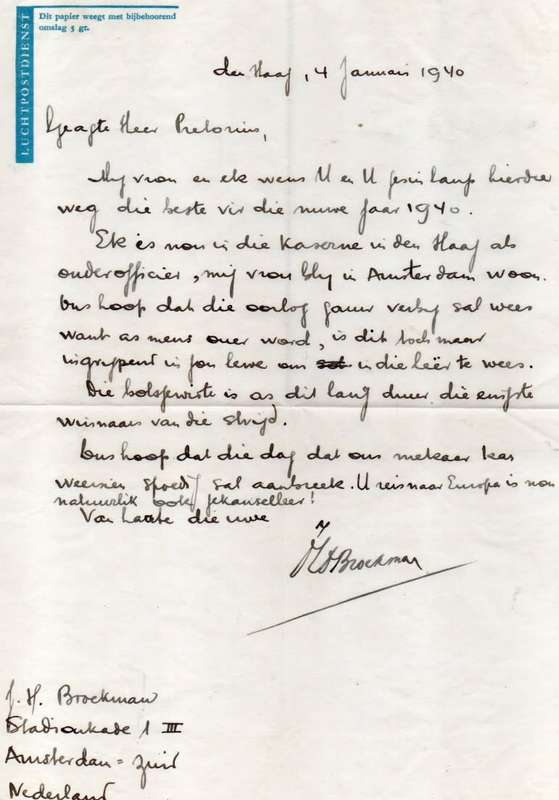 LUCHTPOSTDIENST
Dit papier weegt met bijbehoorend
omslag 5 gr.
den Haag, 4 Januari 1940
Geagte Heer Pretorius,
My vrou en ek wens U en U gesin langs hierdie
weg die beste vir die nuwe jaar 1940.
Ek is nou in die Kaserne in den Haag als
onderofficier, mij vrou bly in Amsterdam woon.
Ons hoop dat die oorlog gauw verby sal wees
want as mens ouer word, is dit toch maar
ingrypend in jou lewe om sat in die leër te wees.
Die bolsjewiste is as dit lang duur die enigste
winnaars van die stryd.
Ons hoop dat die dag dat ons mekaar kan
weersien spoedig sal aanbreek. U reis naar Europa is nou
natuurlik ook gekanselleer!
Van harte die uwe
JHBroekman
J. H. Broekman
Stadionkade 1 III
Amsterdam = Zuid
Nederland